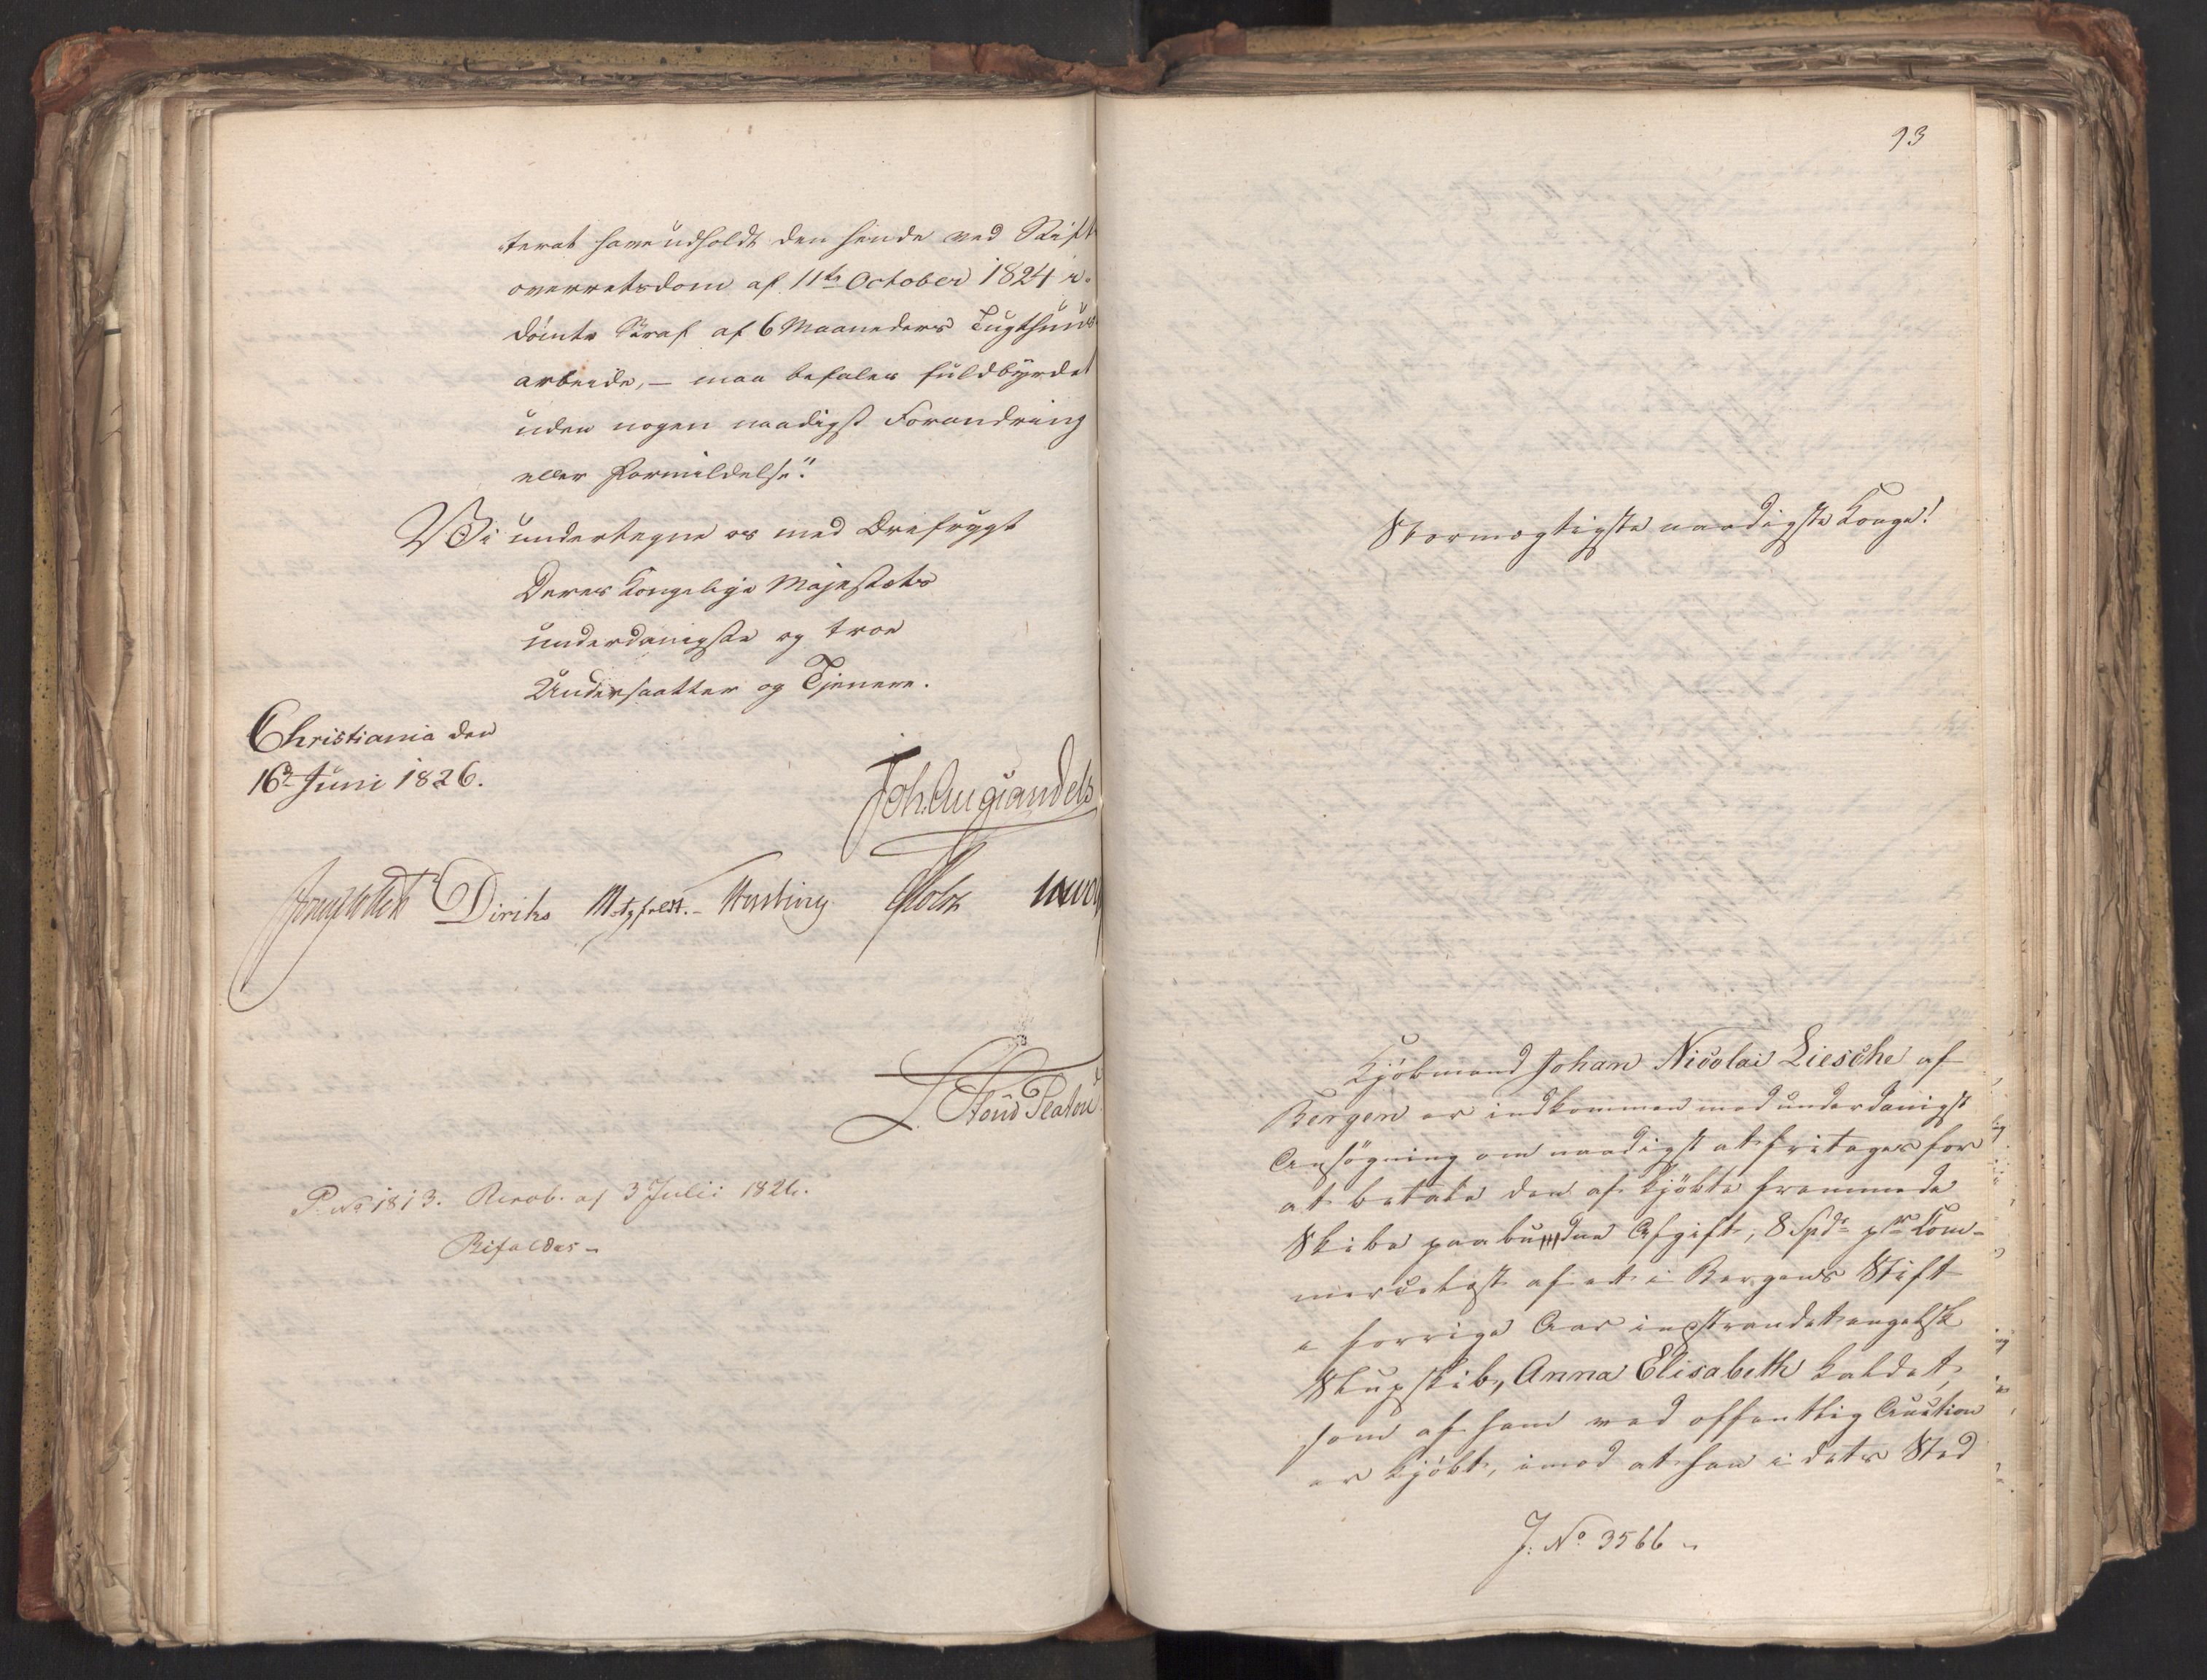 terat have udholdt den hende ved Stift
overretsdom af 11te October 1824 i-
dömte Straf af 6 Maaneders Tugthuus
arbeide, — maa befales fuldbyrdet
uden nogen naadigst Forandring
eller Formildelse".
Vi undertegne os med Ærefrygt
Deres Kongelige Majestæts
underdanigste og troe
Undersaatter og Tjenere.
Christiania den
16d Juni 1826.
Joh. Aug Sandels
Diriks Motzfeldt. Hersleb Holst
L. Stoud Platou
P. No 1813. Resol. af 3 Julii 1826.
Bifaldes -
93
Stormægtigste naadigste Konge!
Kjöbmand Johan Nicolai Liesche af
Bergen er indkommen med underdanigst
Ansögning om naadigst at fritages for
at betale den af kjöbte fremmede
Skibe paabudne Afgift, 8 Spdr pr Com-
mercelæst af et i Bergens Stift
i forrige Aar indstrandet engelsk
Slupskib, Anna Elisabeth kaldet,
som af ham ved offentlig Auction
er kjöbt, imod at han i dets Sted
J. No 3566